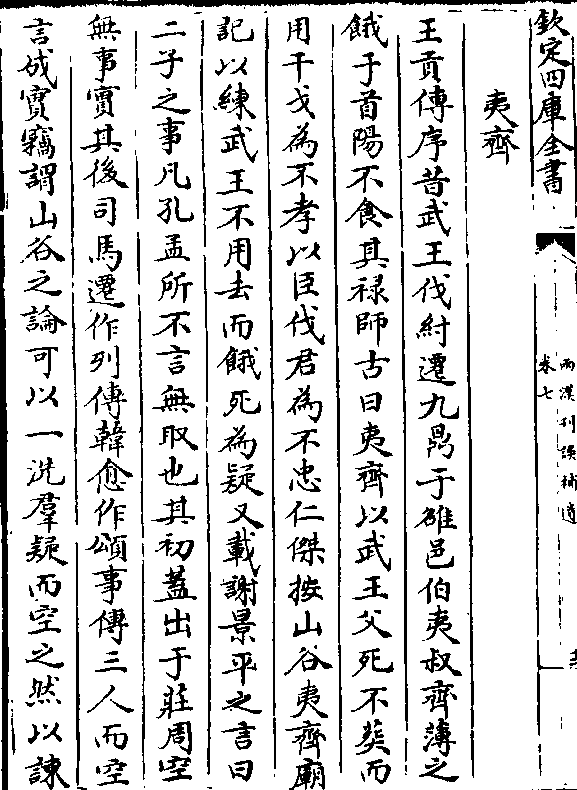 欽定四庫全書
兩漢刊誤補遺
卷七
夷齊
王貢傳序昔武王伐紂遷九鼎于雒邑伯夷叔齊薄之
餓于首陽不食其祿師古曰夷齊以武王父死不葬而
用干戈為不孝以臣伐君為不忠仁傑按山谷夷齊廟
記以練武王不用去而餓死為疑又載謝景平之言曰
二子之事凡孔孟所不言無取也其初蓋出于莊周空
無事實其後司馬遷作列傳韓愈作頌事傳三人而空
言成實竊謂山谷之論可以一洗羣疑而空之然以諫